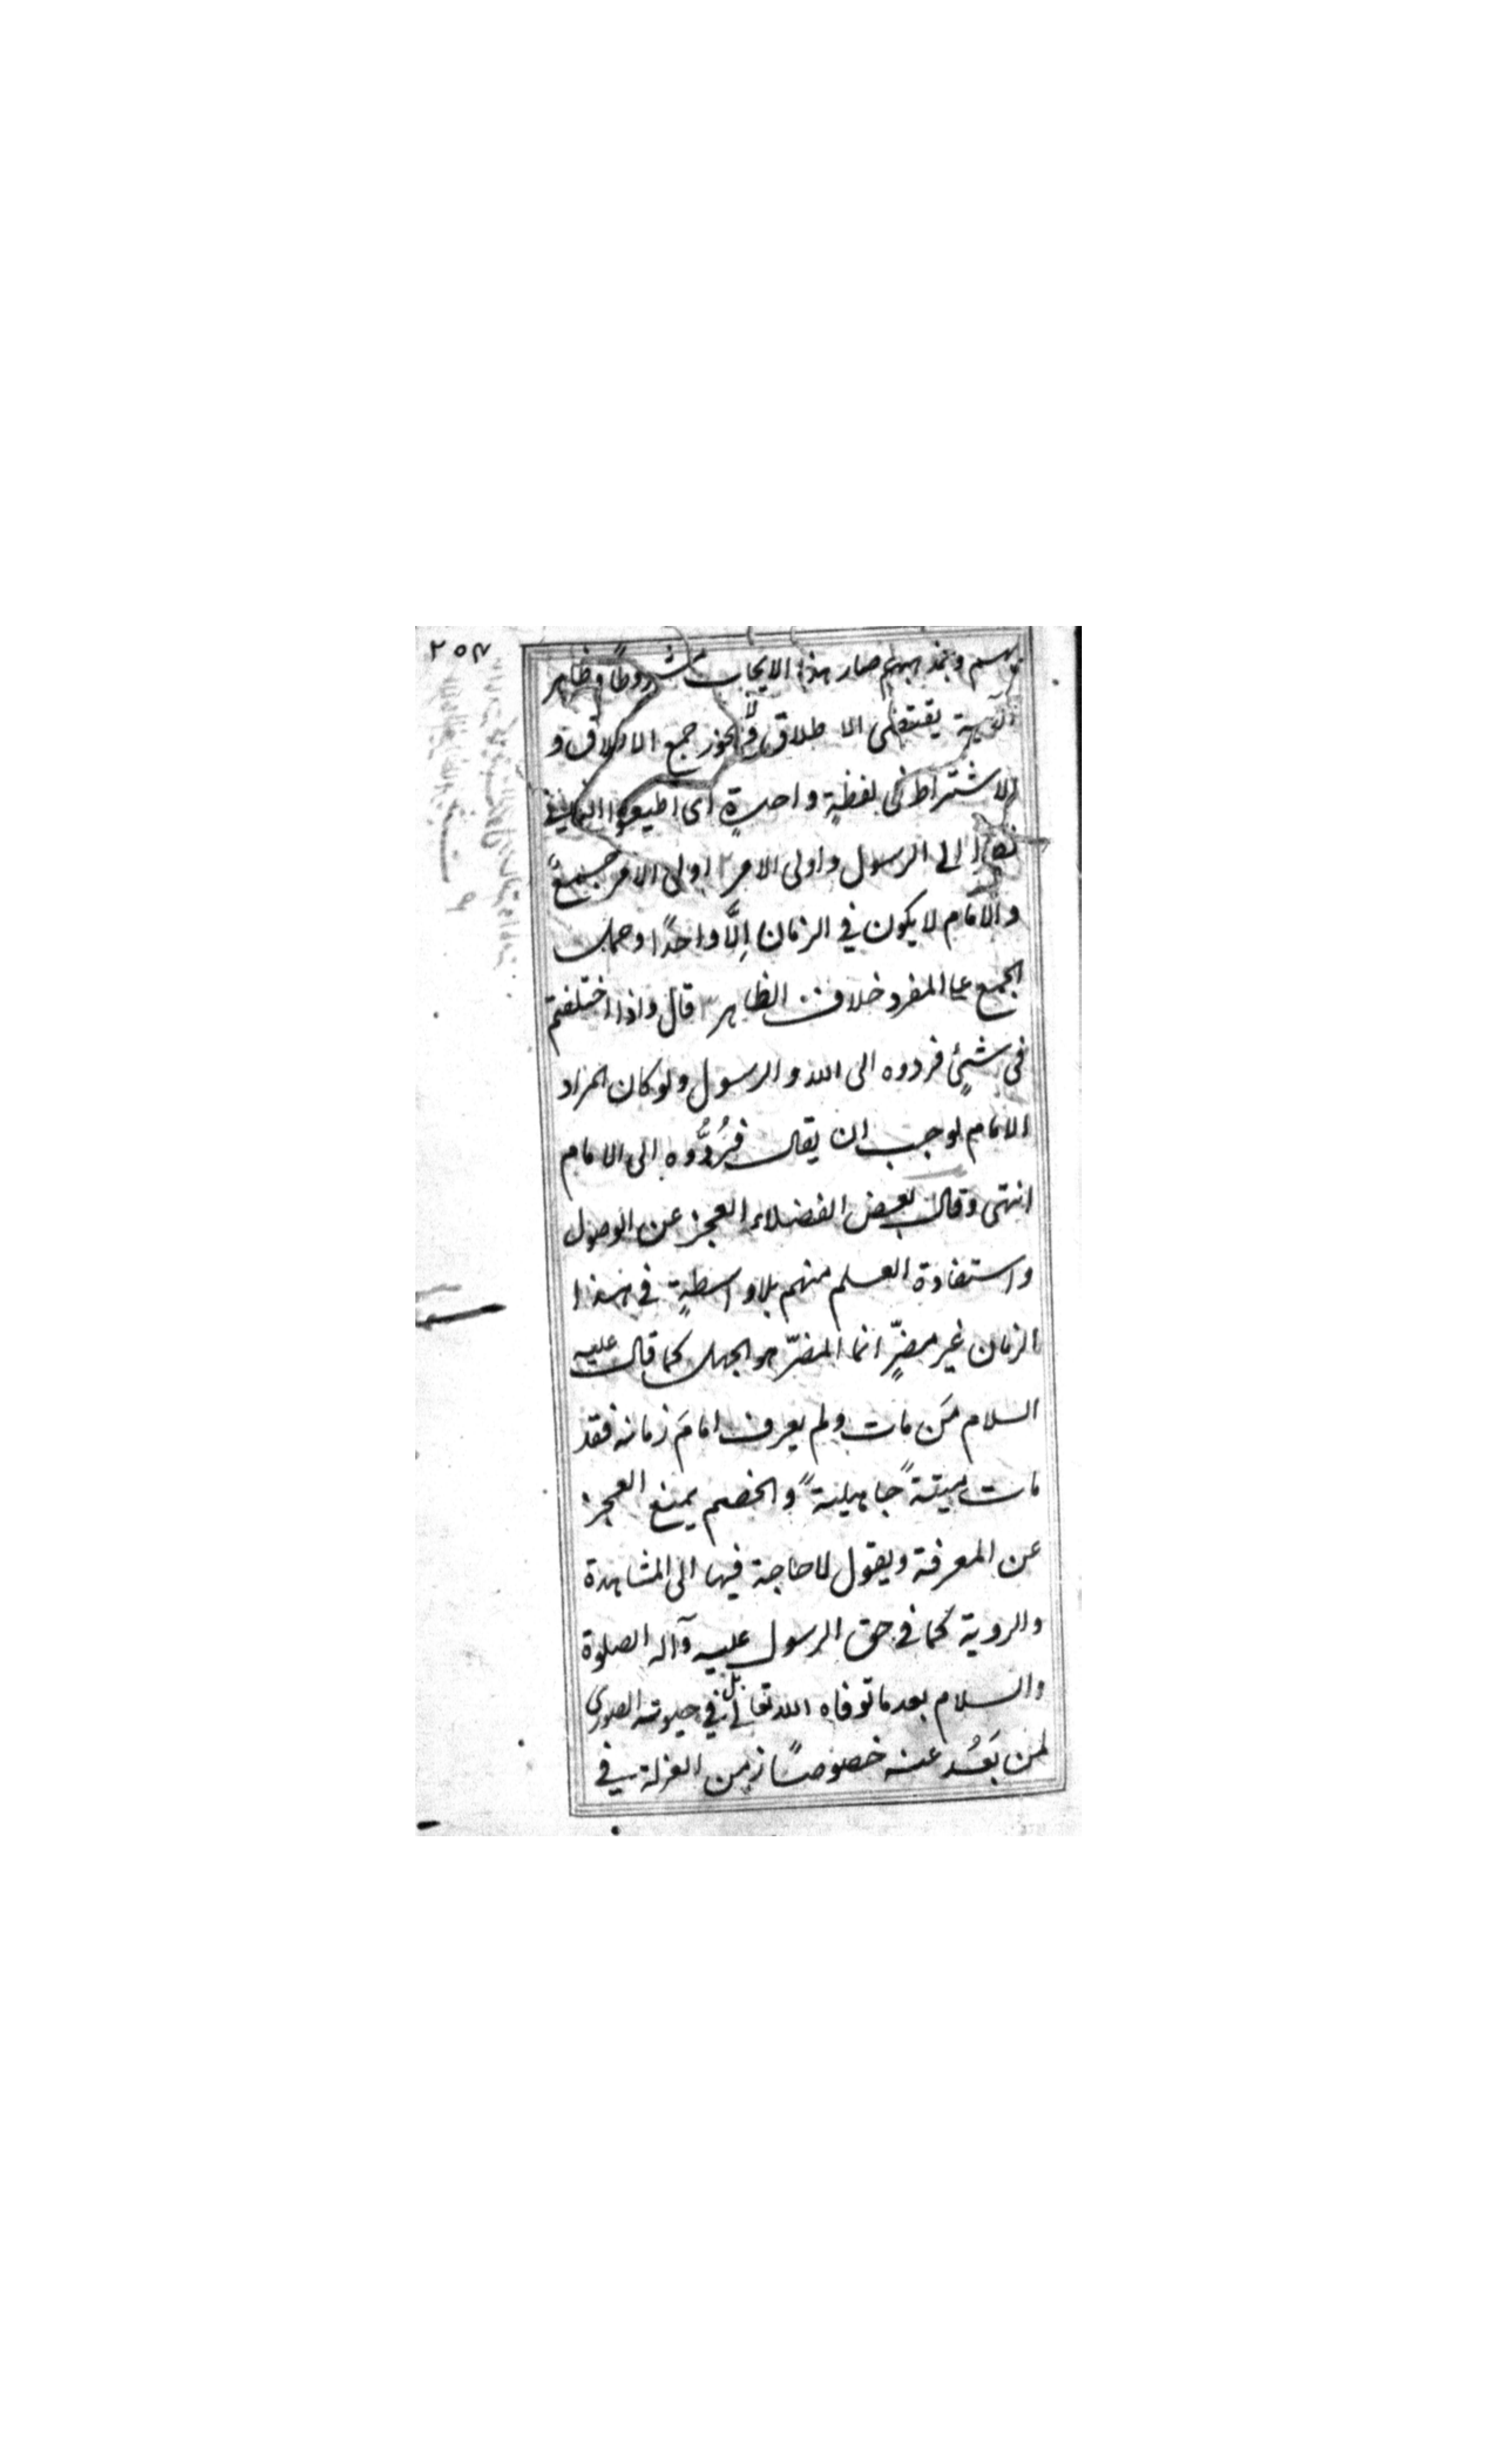 ٢٥٨
بهم وبمذهبهم صار هذا الايجاب مشروطًا وظاهر
الآية يقتضى الاطلاق ولا يجوز جمع الاطلاق و
الاشتراط فى لفظةٍ واحدةٍ اى اطيعوا
الى الرسول واولى الامر ٢ اولى الامر جمعٌ
والامام لا يكون في الزمان اِلَّا واحدًا وحمل
الجمع على المفرد خلاف الظاهر ٣ قال واذا اختلفتم
فى شئٍ فردوه الى الله والرسول ولو كان المراد
الامام لوجب ان يقال فرُدُّوه الى الامام
انتهى وقال بعض الفضلاء العجز عن الوصول
واستفادة العلم منهم بلا واسطةٍ في هذا
الزمان غير مضرٍّ انما المضرّ هو الجهل كما قال عليه
السلام مَن مات ولم يعرف امامَ زمانه فقد
مات ميتةً جاهليةً والخصم يمنع العجز
عن المعرفة ويقول لا حاجة فيها الى المشاهدة
والروية كما في حق الرسول عليه وآله الصلوة
والسلام بعد ما توفاه الله تعالى بل في حيوته الصورى
لمن بَعُد عنه خصوصًا زمن العزلة في